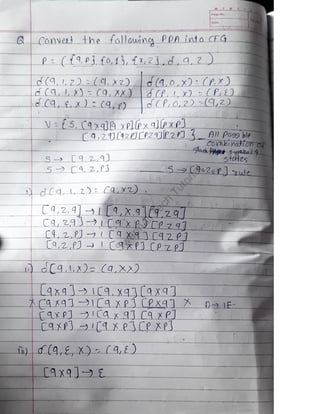 Q Convert the following PDA into CFG
P = ({q,p} {0,1}, {x,z}, d, q, z)
d(q,1,z) = (q,xz) d(q,0,x) = (p,x)
d(q,1,x) = (q,xx) d(p,1,x) = (p,ε)
d(q,ε,x) = (q,ε) d(p,0,z) = (q,z)
V = {S, [qxq][qxp][pxq][pxp]
[qzq][qzp][pzq][pzp] } All possible
combination of
states
S → [q,z,q]
S → [q,z,p] rule
i) d(q,1,z) = (q,xz)
[q,z,q] → 1 [q,x,q][q,z,q]
[q,z,q] → 1 [q x p] [p z q]
[q,z,p] → 1 [q x q] [q z p]
[q,z,p] → 1 [q x p] [p z p]
ii) d(q,1,x) = (q,xx)
[q x q] → 1 [q,x q] [q x q]
x [q x q] → 1 [q x p] [p x q] x
[q x p] → 1 [q x q] [q x p]
[q x p] → 1 [q x p] [p x p]
iii) d(q,ε,x) = (q,ε)
[q x q] → ε